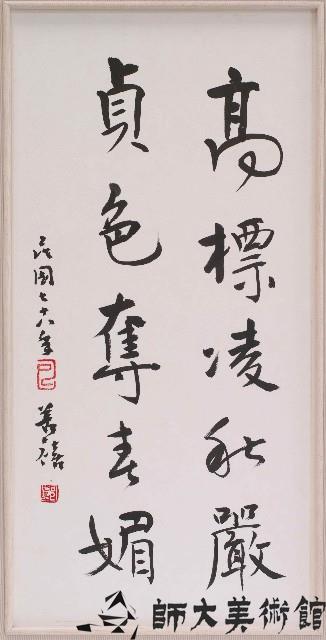 高標凌秋嚴
貞色奪春媚
民國七十六年
善禧
師大美術館